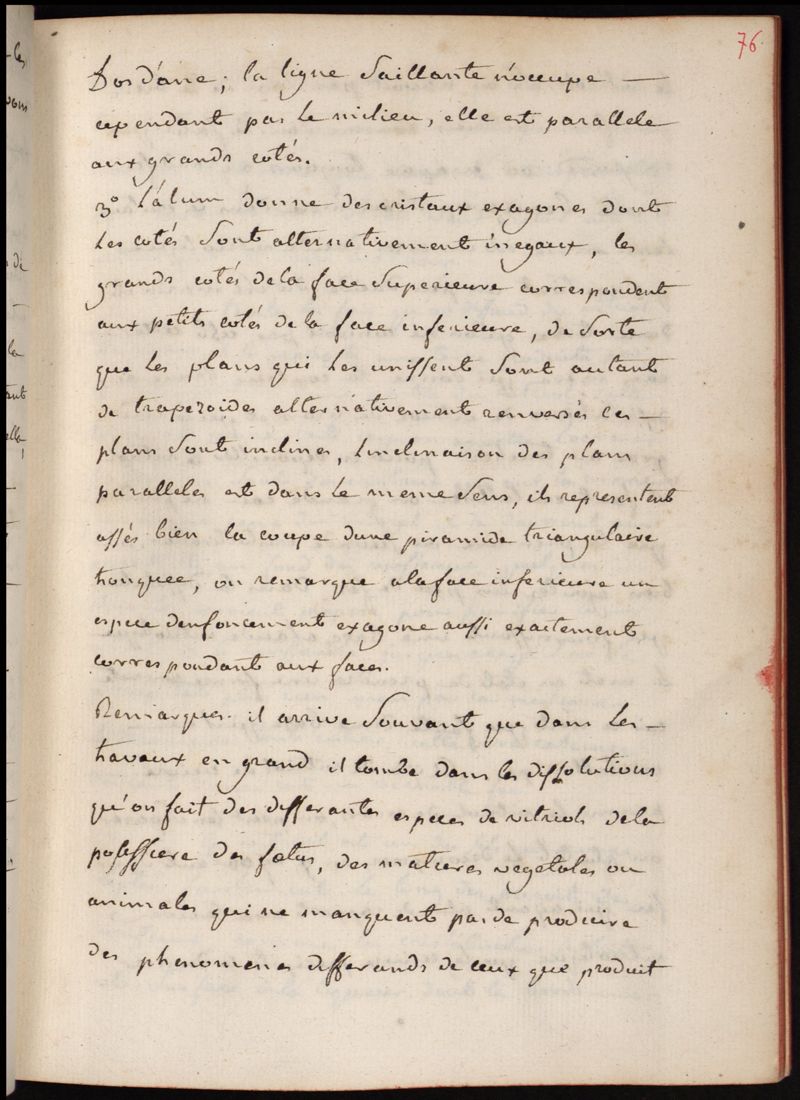 76.
Dos d'ane ; la ligne Saillante n'occupe —
cependant pas le milieu, elle est parallele
aux grands cotés.
3° L'alum donne des cristaux exagones dont
les cotés Sont alternativement inegaux, les
grands cotés de la face Superieure correspondent
aux petits cotés de la face inferieure, de Sorte
que les plans qui les unissent Sont autant
de trapezoides alternativement renversés ces —
plans Sont inclines, linclinaison des plans
paralleles est dans le meme Sens, ils representent
assés bien la coupe dune piramide triangulaire
tronquée, on remarque a la face inferieure un
espece denfoncement exagone aussi exactement
correspondant aux faces.
Remarques. il arrive Souvant que dans les —
travaux en grand il tombe dans les dissolutions
qu'on fait des differantes especes de vitriols de la
poussiere des foetus, des matieres vegetales ou
animales qui ne manquent pas de produire
des phenomenes differands de ceux que produit